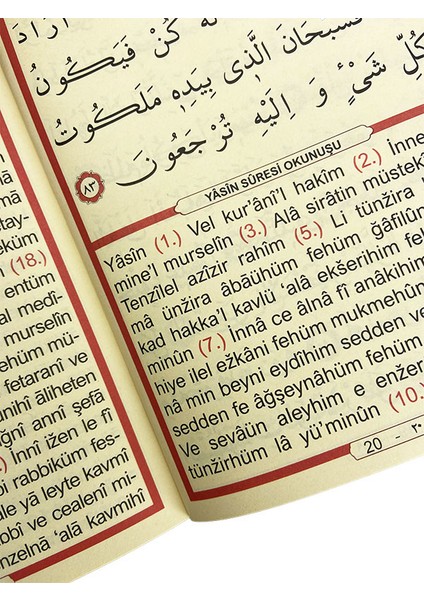 اَرَادَ
لَهُ كُنْ فَيَكُونُ
فَسُبْحَانَ الَّذٖى بِيَدِهٖ مَلَكُوتُ
كُلِّ شَىْءٍ وَ اِلَيْهِ تُرْجَعُونَ
٨٣
YÂSİN SÛRESİ OKUNUŞU
Yâsîn (1.) Vel kur'âni'l hakîm (2.) İnne
mine'l murselîn (3.) Alâ sirâtin müstekî
Tenzîlel azîzir rahîm (5.) Li tünžira
mâ ünžira âbâühüm fehüm ğâfilûn
kad hakka'l kavlü 'alâ ekšerihim feh
minûn (7.) İnnâ ce âlnâ fî anâkihim
hiye ilel ežkâni fehüm mukmehûn
nâ min beyni eydîhim sedden ve
sedden fe âğşeynâhüm fehüm
Ve sevâün aleyhim e enžer
tünžirhüm lâ yü'minûn (10.
20 - ٢٠
tay-
eküm
(18.)
entüm
al medî-
murselîn
ehüm mü-
fetaranî ve
unihî âliheten
iğnî annî şefâ
.) İnnî ižen le fî
bi rabbiküm fes-
le yâ leyte kavmî
bbî ve cealenî mi-
nzelnâ 'alâ kavmihî